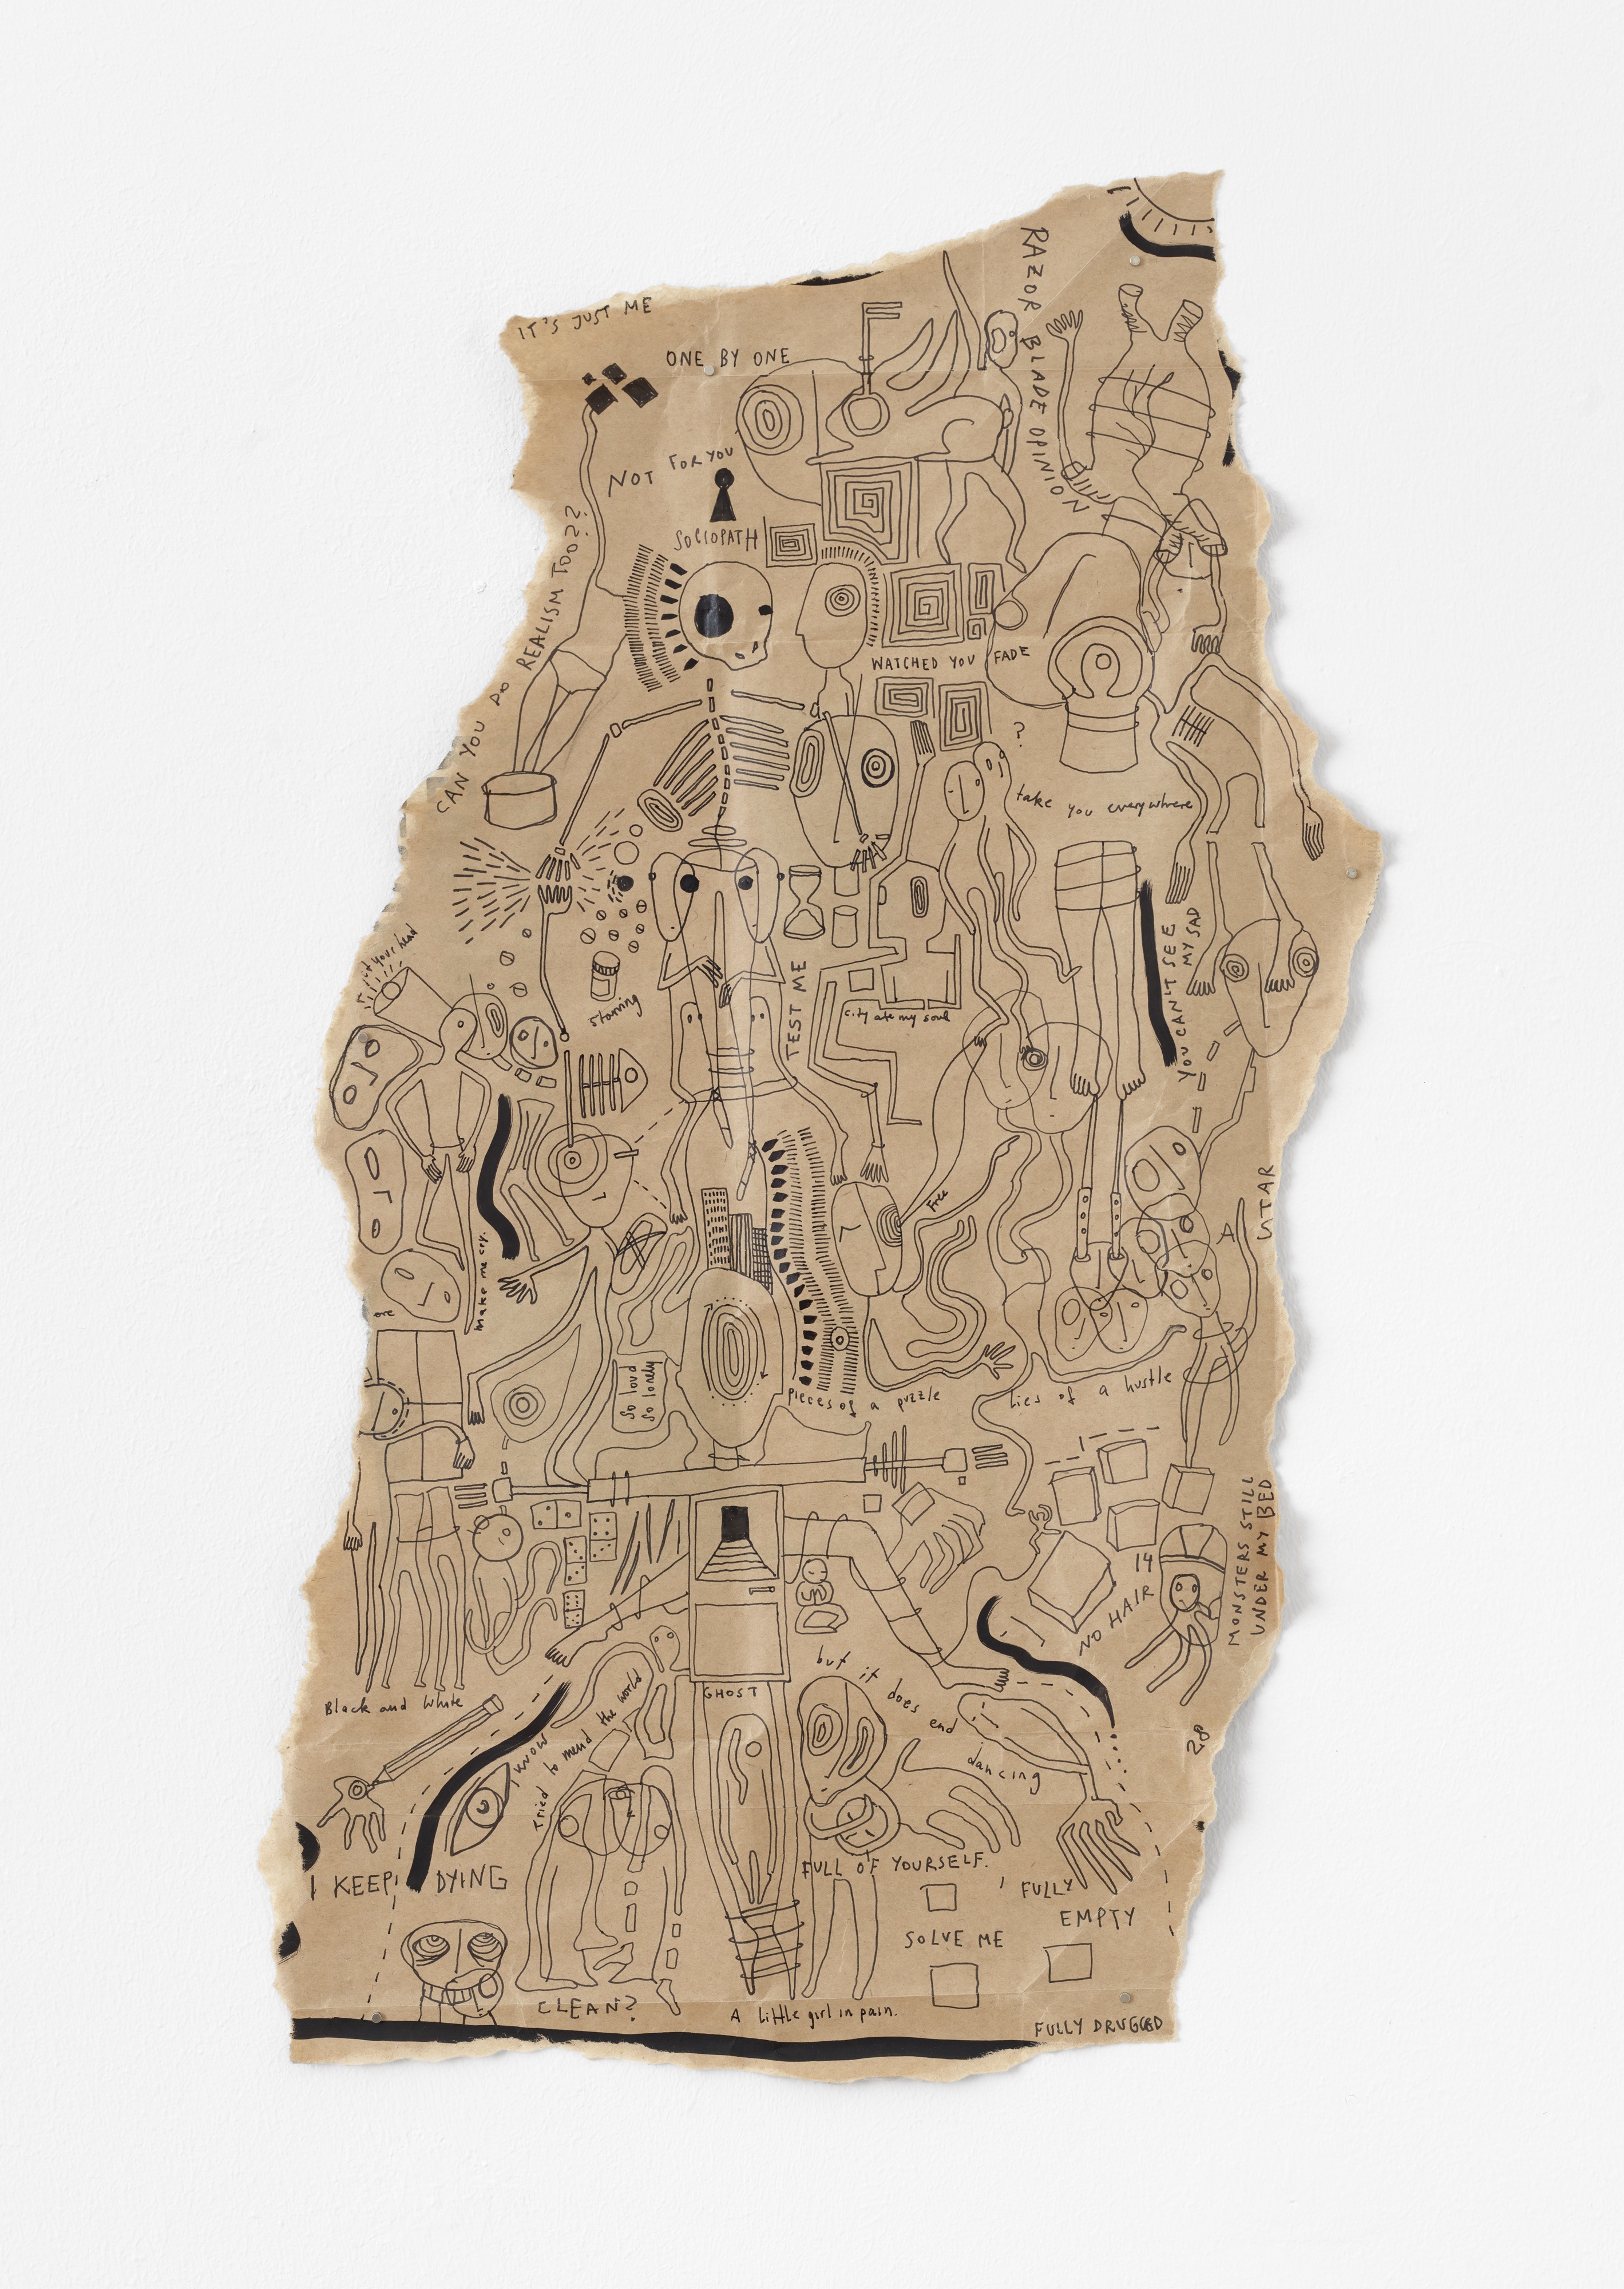 IT'S JUST ME
ONE BY ONE
RAZOR BLADE OPINION
NOT FOR YOU
SOCIOPATH
CAN YOU DO REALISM TOO??
WATCHED YOU FADE
?
take you everywhere
your head
starving
TEST ME
city ate my soul
YOU CAN'T SEE
MY SAD
Free
A STAR
make me cry.
So loud
So lonely
pieces of a puzzle
Lies of a hustle
MONSTERS STILL
UNDER MY BED
14
NO HAIR
Black and white
GHOST
but it does end dancing
28
I know
tried to mend the world
I KEEP DYING
FULL OF YOURSELF.
FULLY
EMPTY
SOLVE ME
CLEAN?
A little girl in pain.
FULLY DRUGGED